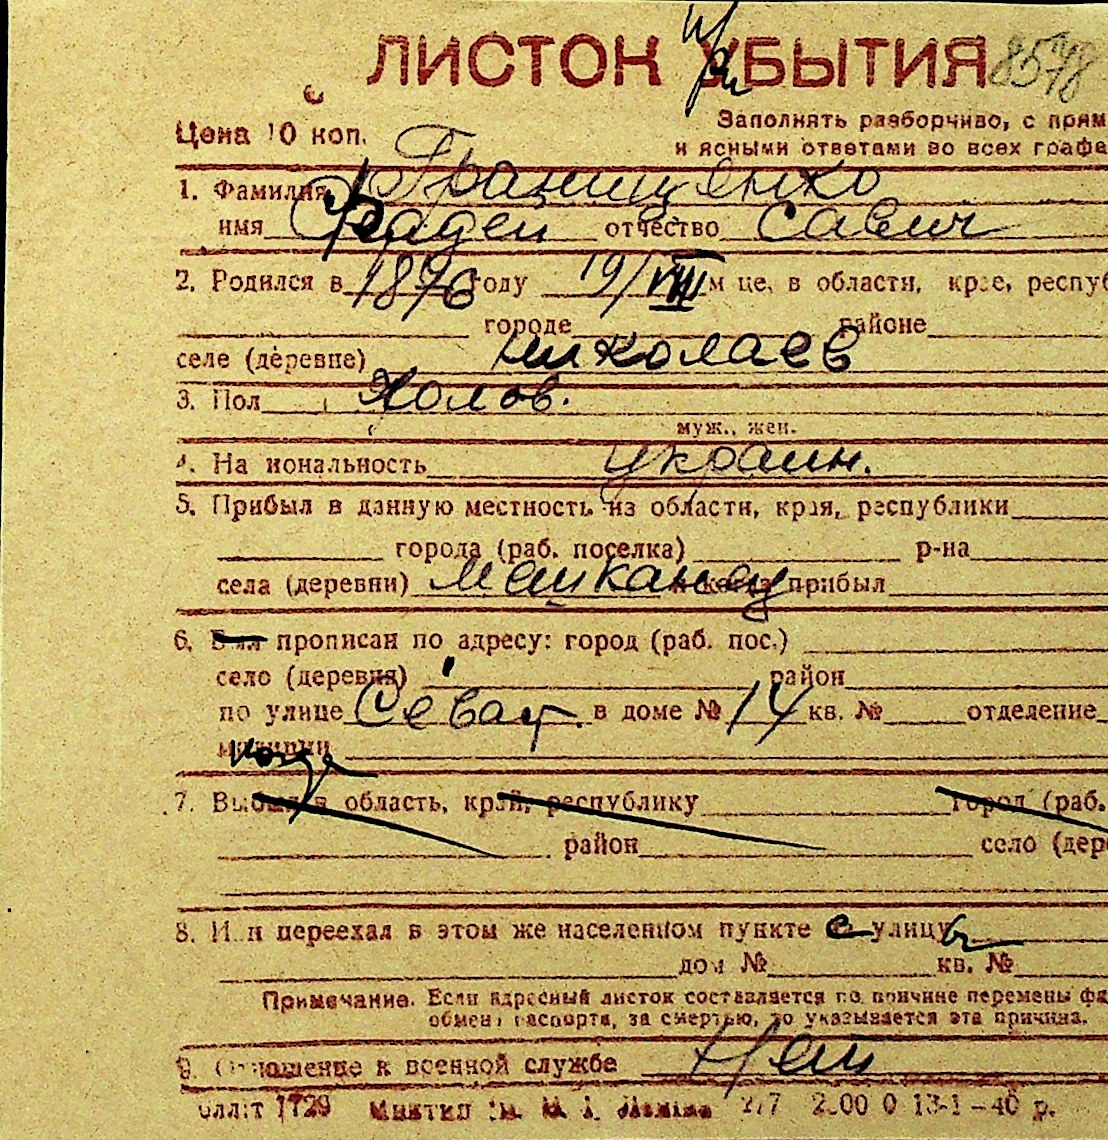 ЛИСТОК УБЫТИЯ
При
8578
Цена 10 коп.
Заполнять разборчиво, с прям
и ясными ответами во всех графа
1. Фамилия Гранищенко
имя Фадей отчество Савич
2. Родился в 1896 году 19/VIII м це, в области, крае, респуб
городе районе
селе (деревне) Николаев
3. Пол Холов.
муж., жен.
4. На иональность Украин.
5. Прибыл в данную местность из области, края, республики
города (раб. поселка) р-на
села (деревни) Майкаиец и когда прибыл
6. Был прописан по адресу: город (раб. пос.)
село (деревня) район
по улице Севаст. в доме № 14 кв. № отделение
милиции когда
7. Выбыл в область, край, республику город (раб.
район село (дере
8. Или переехал в этом же населенном пункте с улицу
дом № кв. №
Примечание. Если адресный листок составляется по причине перемены фа
обмена паспорта, за смертью, то указывается эта причина.
9. Отношение к военной службе Нет
1729 277 13-1-40 р.